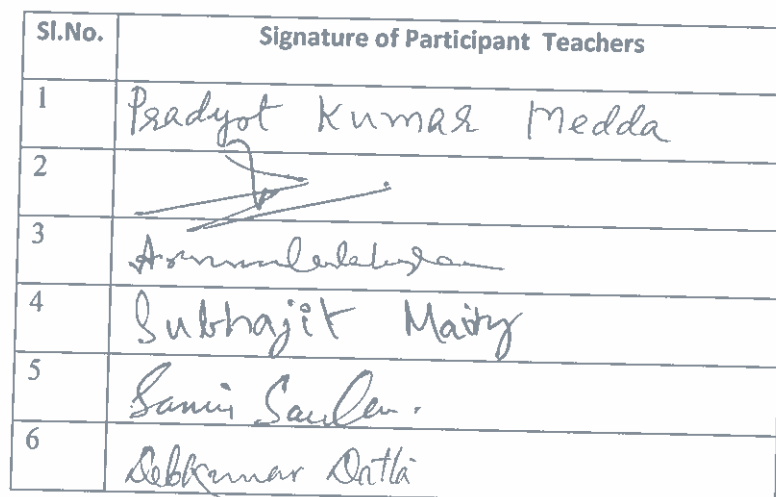 Sl.No. Signature of Participant Teachers
1 Pradyot Kumar Medda
2
3
4 Subhajit Maity
5 Samir
6 Debkumar Datta